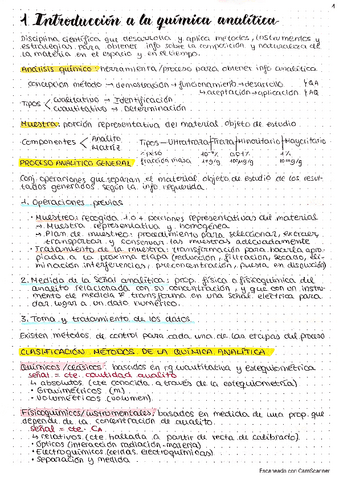 1
1. Introducción a la química analítica
Disciplina científica que desarrolla y aplica métodos, instrumentos y
estrategias para obtener info sobre la composición y naturaleza de
la materia en el espacio y en el tiempo.
Análisis químico: herramienta/proceso para obtener info analítica
concepción método → demostración → funcionamiento → desarrollo
→ aceptación → aplicación
Tipos Cualitativo → Identificación
Cuantitativo → Determinación
Muestra: porción representativa del material objeto de estudio
Componentes Analito
Matriz
Tipos - Ultratraza|Traza|Minoritario|Mayoritario
PROCESO ANALÍTICO GENERAL
Conj. operaciones que separan el material objeto de estudio de los resul-
tados generados según la info requerida.
1. Operaciones previas
• Muestreo: recogida 1 o + porciones representativas del material
→ Muestra representativa y homogénea
→ Plan de muestreo: procedimiento para seleccionar, extraer,
transportar y conservar las muestras adecuadamente
• Tratamiento de la muestra: transformación para hacerla apro-
piada a la próxima etapa (reducción, filtración, secado, eli-
minación interferencias, preconcentración, puesta en disolución)
2. Medida de la señal analítica: prop. física o fisicoquímica del
analito relacionada con su concentración, y que con un instru-
mento de medida se transforma en una señal eléctrica para
dar lugar a un dato numérico.
3. Toma y tratamiento de los datos
Existen métodos de control para cada una de las etapas del proceso
CLASIFICACIÓN MÉTODOS DE LA QUÍMICA ANALÍTICA
Químicos/clásicos: basados en rq cuantitativa y estequiométrica
señal = cte. cantidad analito
↳ absolutos (cte conocida a través de la estequiometría)
• Gravimétricos (m)
• Volumétricos (volumen)
Fisicoquímicos/instrumentales: basados en medida de una prop. que
depende de la concentración de analito.
señal = cte. CA
↳ relativos (cte hallada a partir de recta de calibrado)
• Ópticos (interacción radiación-materia)
• Electroquímicos (celdas electroquímicas)
• Separación y medida
Escaneado con CamScanner